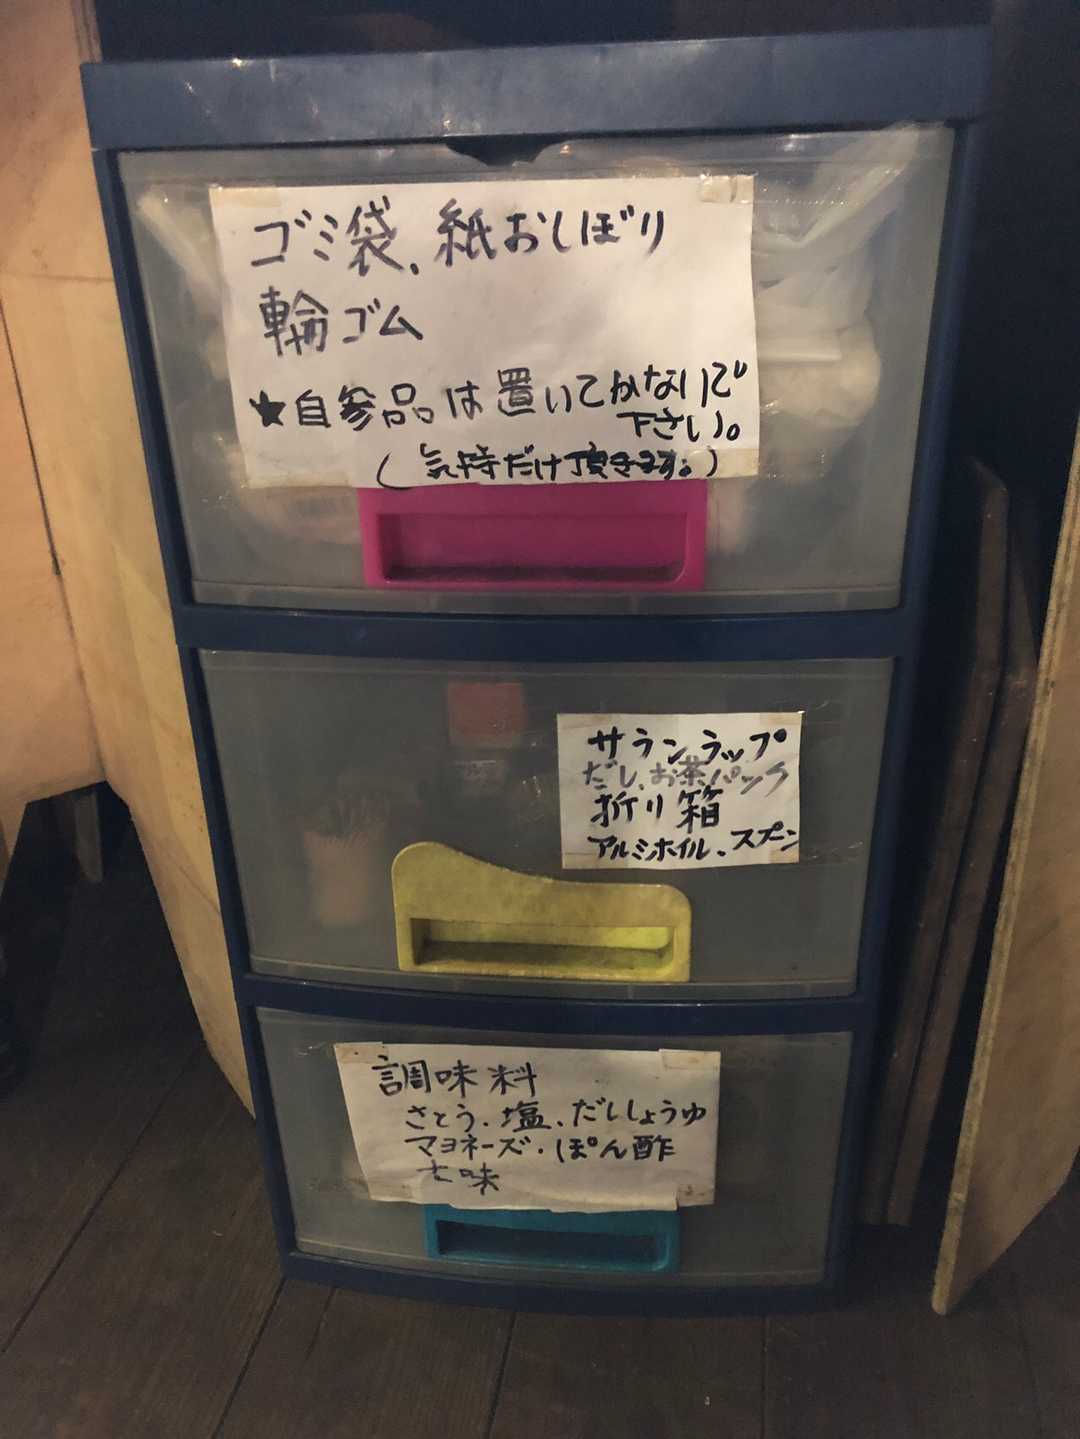 ゴミ袋、紙おしぼり
輪ゴム
★自参品は置いてかないで
下さい。
(気持だけ頂きます。)
サランラップ
だし、お茶パック
折り箱
アルミホイル、スプーン
調味料
さとう、塩、だししょうゆ
マヨネーズ・ぽん酢
七味